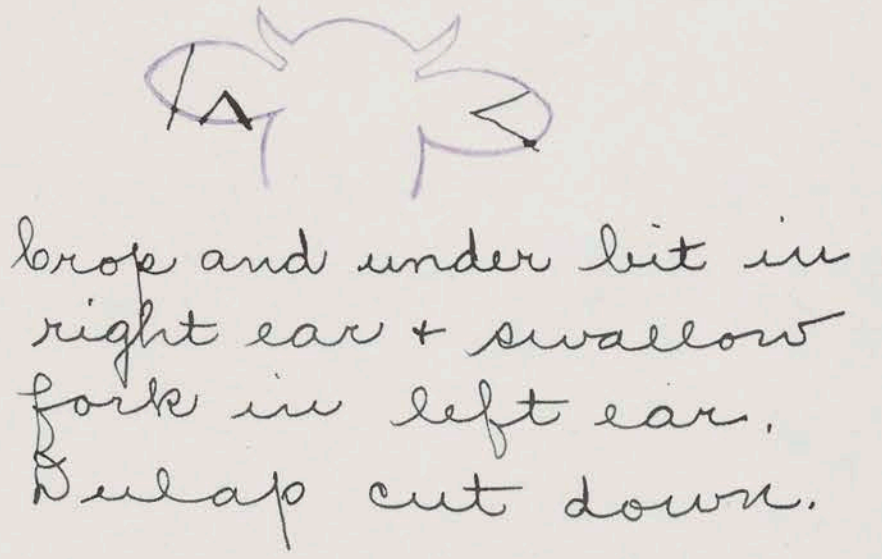 Crop and under bit in
right ear + swallow
fork in left ear.
Dulap cut down.